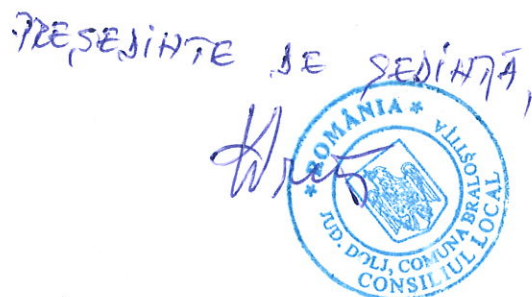 PREȘEDINTE DE ȘEDINȚĂ,
* ROMÂNIA *
JUD. DOLJ, COMUNA BRALOȘTIȚA
CONSILIUL LOCAL